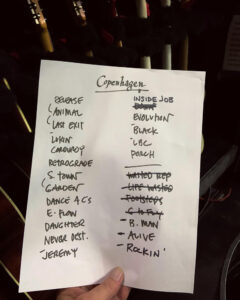 Copenhagen
RELEASE
ANIMAL
LAST EXIT
LUKIN
CORDUROY
RETROGRADE
S. TOWN
GARDEN
DANCE 4 C's
E. FLOW
DAUGHTER
NEVER DEST.
JEREMY
INSIDE JOB
EVOLUTION
BLACK
LBC
PORCH
WAITED REP
LIFE WASTED
FOOTSTEPS
B. MAN
ALIVE
ROCKIN'